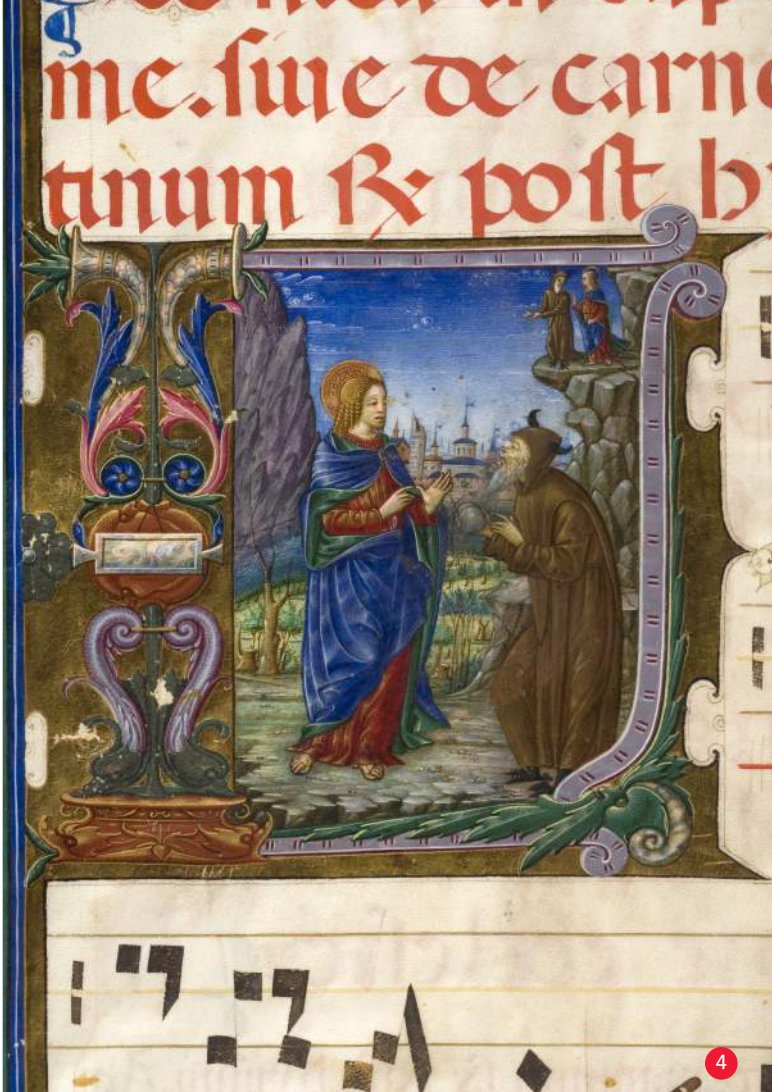 me. siue de carne
tinum ℞ post h
4